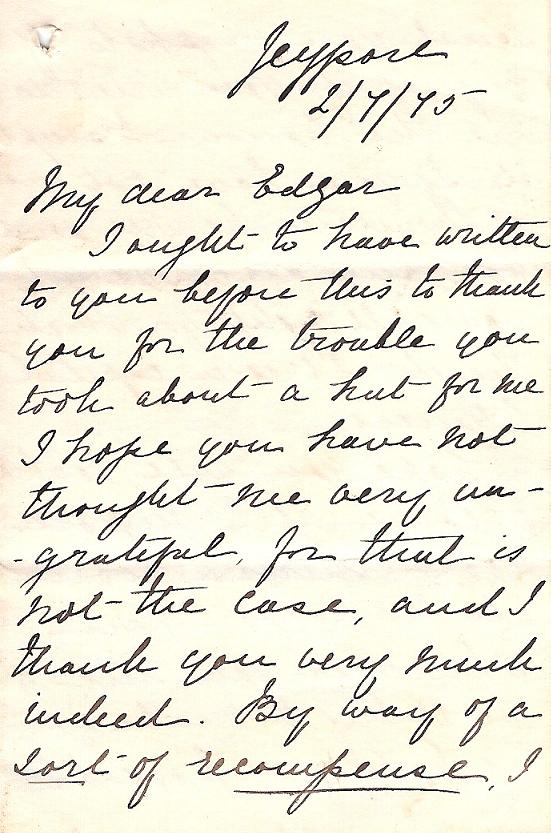 Jeypore
2/7/75
My dear Edgar
I ought to have written
to you before this to thank
you for the trouble you
took about a hut for me
I hope you have not
thought me very un-
-grateful, for that is
not the case, and I
thank you very much
indeed. By way of a
sort of recompense, I